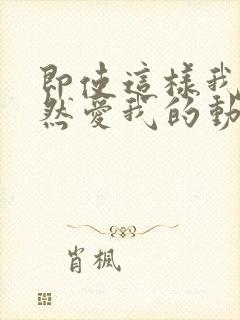 即使這樣我
然愛我的動
肖楓